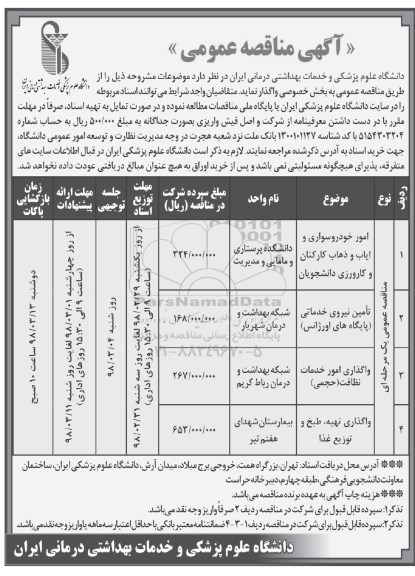 « آگهی مناقصه عمومی »
دانشگاه علوم پزشکی و خدمات بهداشتی درمانی ایران
دانشگاه علوم پزشکی و خدمات بهداشتی درمانی ایران در نظر دارد موضوعات مشروحه ذیل را از
طریق مناقصه عمومی به بخش خصوصی واگذار نماید. متقاضیان واجد شرایط می توانند اسناد مربوطه
را در سایت دانشگاه علوم پزشکی ایران یا پایگاه ملی مناقصات مطالعه نموده و در صورت تمایل به تهیه اسناد، صرفاً در مهلت
مقرر با در دست داشتن معرفینامه از شرکت و اصل فیش واریزی بصورت جداگانه به مبلغ ۵۰۰/۰۰۰ ریال به حساب شماره
۵۱۵۴۳۰۳۲۰۴ با کد شناسه ۱۳۰۰۱۰۱۱۳۷ بانک ملت نزد شعبه هجرت در وجه مدیریت نظارت و توسعه امور عمومی دانشگاه،
جهت خرید اسناد به آدرس ذکرشده مراجعه نمایند. لازم به ذکر است دانشگاه علوم پزشکی ایران در قبال اطلاعات سایت های
متفرقه، پذیرای هیچگونه مسئولیتی نمی باشد و پس از خرید اوراق به هیچ عنوان مبالغ دریافتی عودت داده نخواهد شد.
ردیف | نوع | موضوع | نام واحد | مبلغ سپرده شرکت در مناقصه (ریال) | مهلت توزیع اسناد | جلسه توجیهی | مهلت ارائه پیشنهادات | زمان بازگشایی پاکات
مناقصه عمومی یک مرحله ای
۱ | امور خودروسواری و ایاب و ذهاب کارکنان و کارورزی دانشجویان | دانشکده پرستاری و مامایی و مدیریت | ۳۲۴/۰۰۰/۰۰۰
۲ | تأمین نیروی خدماتی (پایگاه های اورژانس) | شبکه بهداشت و درمان شهریار | ۱۶۸/۰۰۰/۰۰۰
۳ | واگذاری امور خدمات نظافت (حجمی) | شبکه بهداشت و درمان رباط کریم | ۲۶۷/۰۰۰/۰۰۰
۴ | واگذاری تهیه، طبخ و توزیع غذا | بیمارستان شهدای هفتم تیر | ۶۵۳/۰۰۰/۰۰۰
از روز یکشنبه ۹۸/۰۲/۲۹ لغایت روز سه شنبه ۹۸/۰۲/۳۱ (ساعت ۹ الی ۱۵:۳۰ روزهای اداری)
روز شنبه ۹۸/۰۳/۰۴
از روز چهارشنبه ۹۸/۰۳/۰۱ لغایت روز شنبه ۹۸/۰۳/۱۱ (ساعت ۹ الی ۱۵:۳۰ روزهای اداری)
دوشنبه ۹۸/۰۳/۱۳ ساعت ۱۰ صبح
ParsNamadData
۰۲۱-۸۸۳۴۹۶۷۰-۵
※※※ آدرس محل دریافت اسناد: تهران، بزرگراه همت، خروجی برج میلاد، میدان آرش، دانشگاه علوم پزشکی ایران، ساختمان
معاونت دانشجویی فرهنگی، طبقه چهارم، دبیرخانه حراست
※※※ هزینه چاپ آگهی به عهده برنده مناقصه می باشد.
تذکر۱: سپرده قابل قبول برای شرکت در مناقصه ردیف ۲ صرفاً واریز وجه نقد می باشد.
تذکر۲: سپرده قابل قبول برای شرکت در مناقصه ردیف ۱-۳-۴ ضمانتنامه معتبر بانکی با حداقل اعتبار سه ماهه یا واریز وجه نقد می باشد.
دانشگاه علوم پزشکی و خدمات بهداشتی درمانی ایران